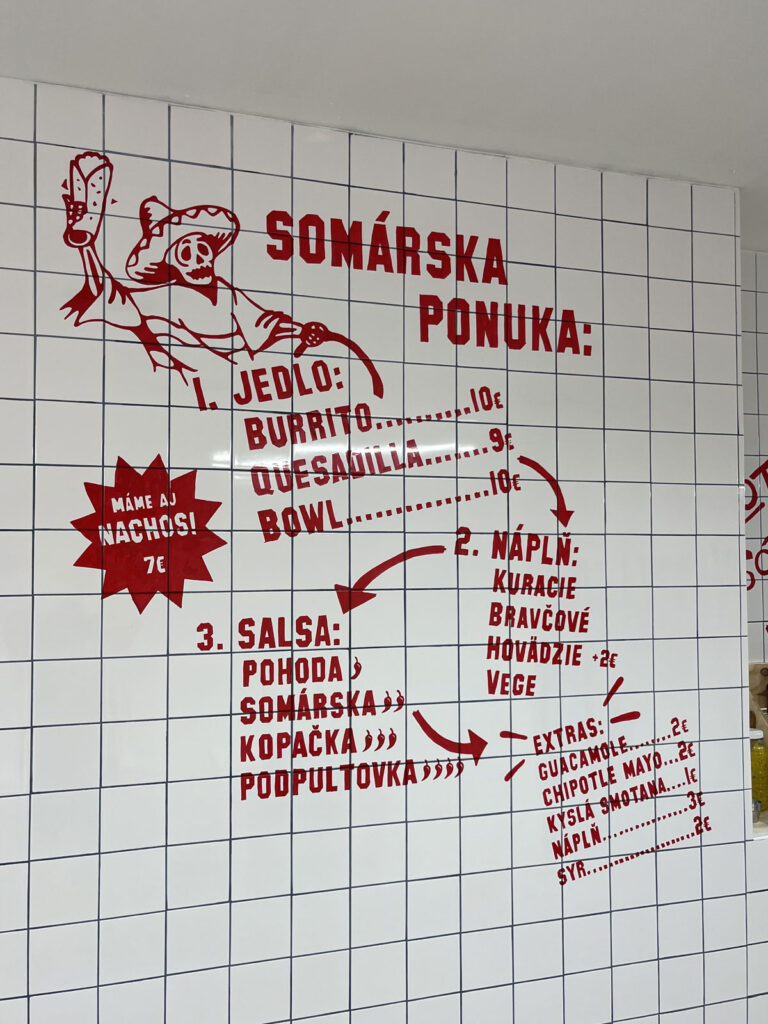 SOMÁRSKA
PONUKA:
1. JEDLO:
BURRITO..........10€
QUESADILLA.......9€
BOWL................10€
MÁME AJ
NACHOS!
7€
2. NÁPLŇ:
KURACIE
BRAVČOVÉ
HOVÄDZIE +2€
VEGE
3. SALSA:
POHODA
SOMÁRSKA
KOPAČKA
PODPULTOVKA
EXTRAS:
GUACAMOLE........2€
CHIPOTLE MAYO...2€
KYSLÁ SMOTANA....1€
NÁPLŇ...............3€
SYR....................2€